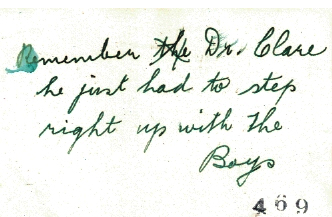 Remember the Dr. Clare
he just had to step
right up with the
Boys
409